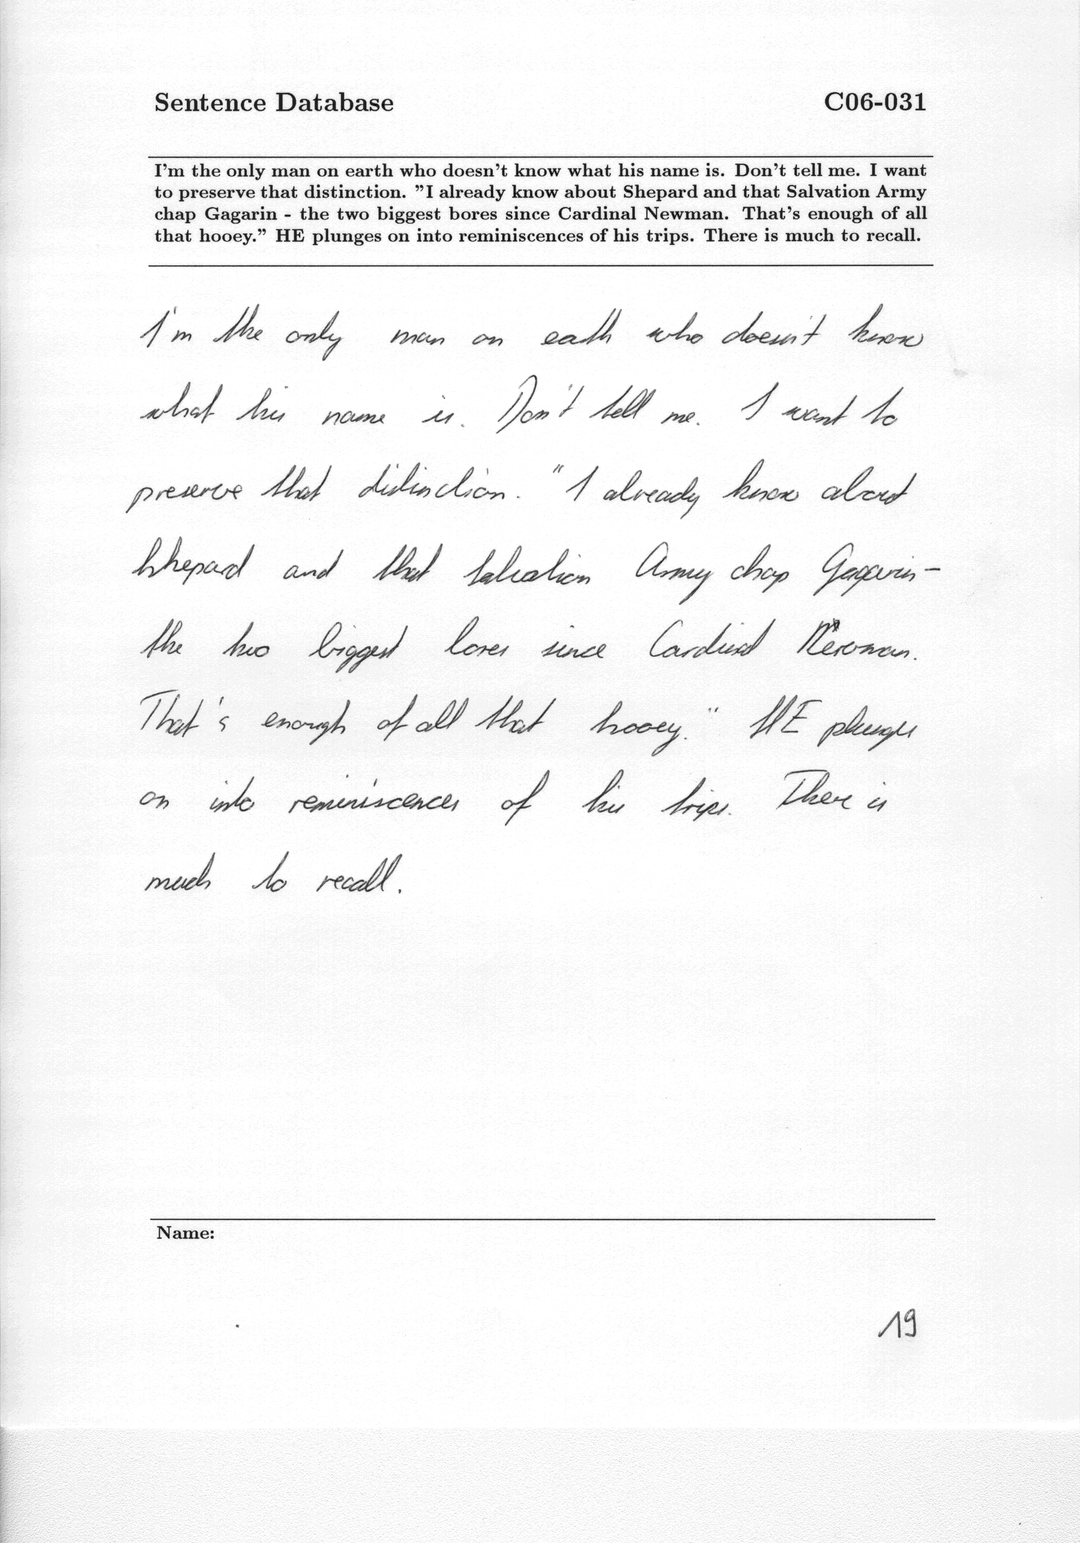 Sentence Database C06-031
I'm the only man on earth who doesn't know what his name is. Don't tell me. I want
to preserve that distinction. "I already know about Shepard and that Salvation Army
chap Gagarin - the two biggest bores since Cardinal Newman. That's enough of all
that hooey." HE plunges on into reminiscences of his trips. There is much to recall.
I'm the only man on earth who doesn't know
what his name is. Don't tell me. I want to
preserve that distinction. "I already know about
Shepard and that Salvation Army chap Gagarin-
the two biggest bores since Cardinal Newman.
That's enough of all that hooey." HE plunges
on into reminiscences of his trips. There is
much to recall.
Name:
19